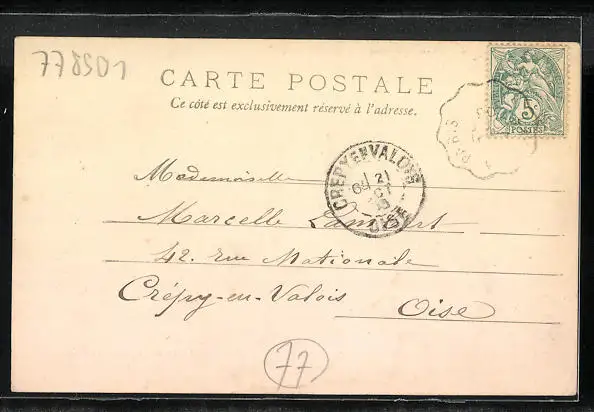 778501
CARTE POSTALE
Ce côté est exclusivement réservé à l'adresse.
5c
POSTES
PARIS
CREPY EN VALOIS
21
OISE
Mademoiselle
Marcelle Lambert
42. rue Nationale
Crépy-en-Valois Oise
77